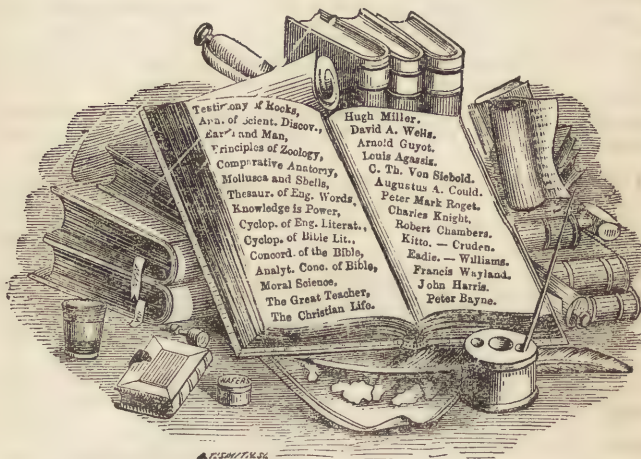 Testimony of Rocks,
Ann. of Scient. Discov.,
Earth and Man,
Principles of Zoology,
Comparative Anatomy,
Mollusca and Shells,
Thesaur. of Eng. Words,
Knowledge is Power,
Cyclop. of Eng. Literat.,
Cyclop. of Bible Lit.,
Concord. of the Bible,
Analyt. Conc. of Bible,
Moral Science,
The Great Teacher,
The Christian Life.
Hugh Miller.
David A. Wells.
Arnold Guyot.
Louis Agassiz.
C. Th. Von Siebold.
Augustus A. Could.
Peter Mark Roget.
Charles Knight.
Robert Chambers.
Kitto. — Cruden.
Eadie. — Williams.
Francis Wayland.
John Harris.
Peter Bayne.
WAFERS